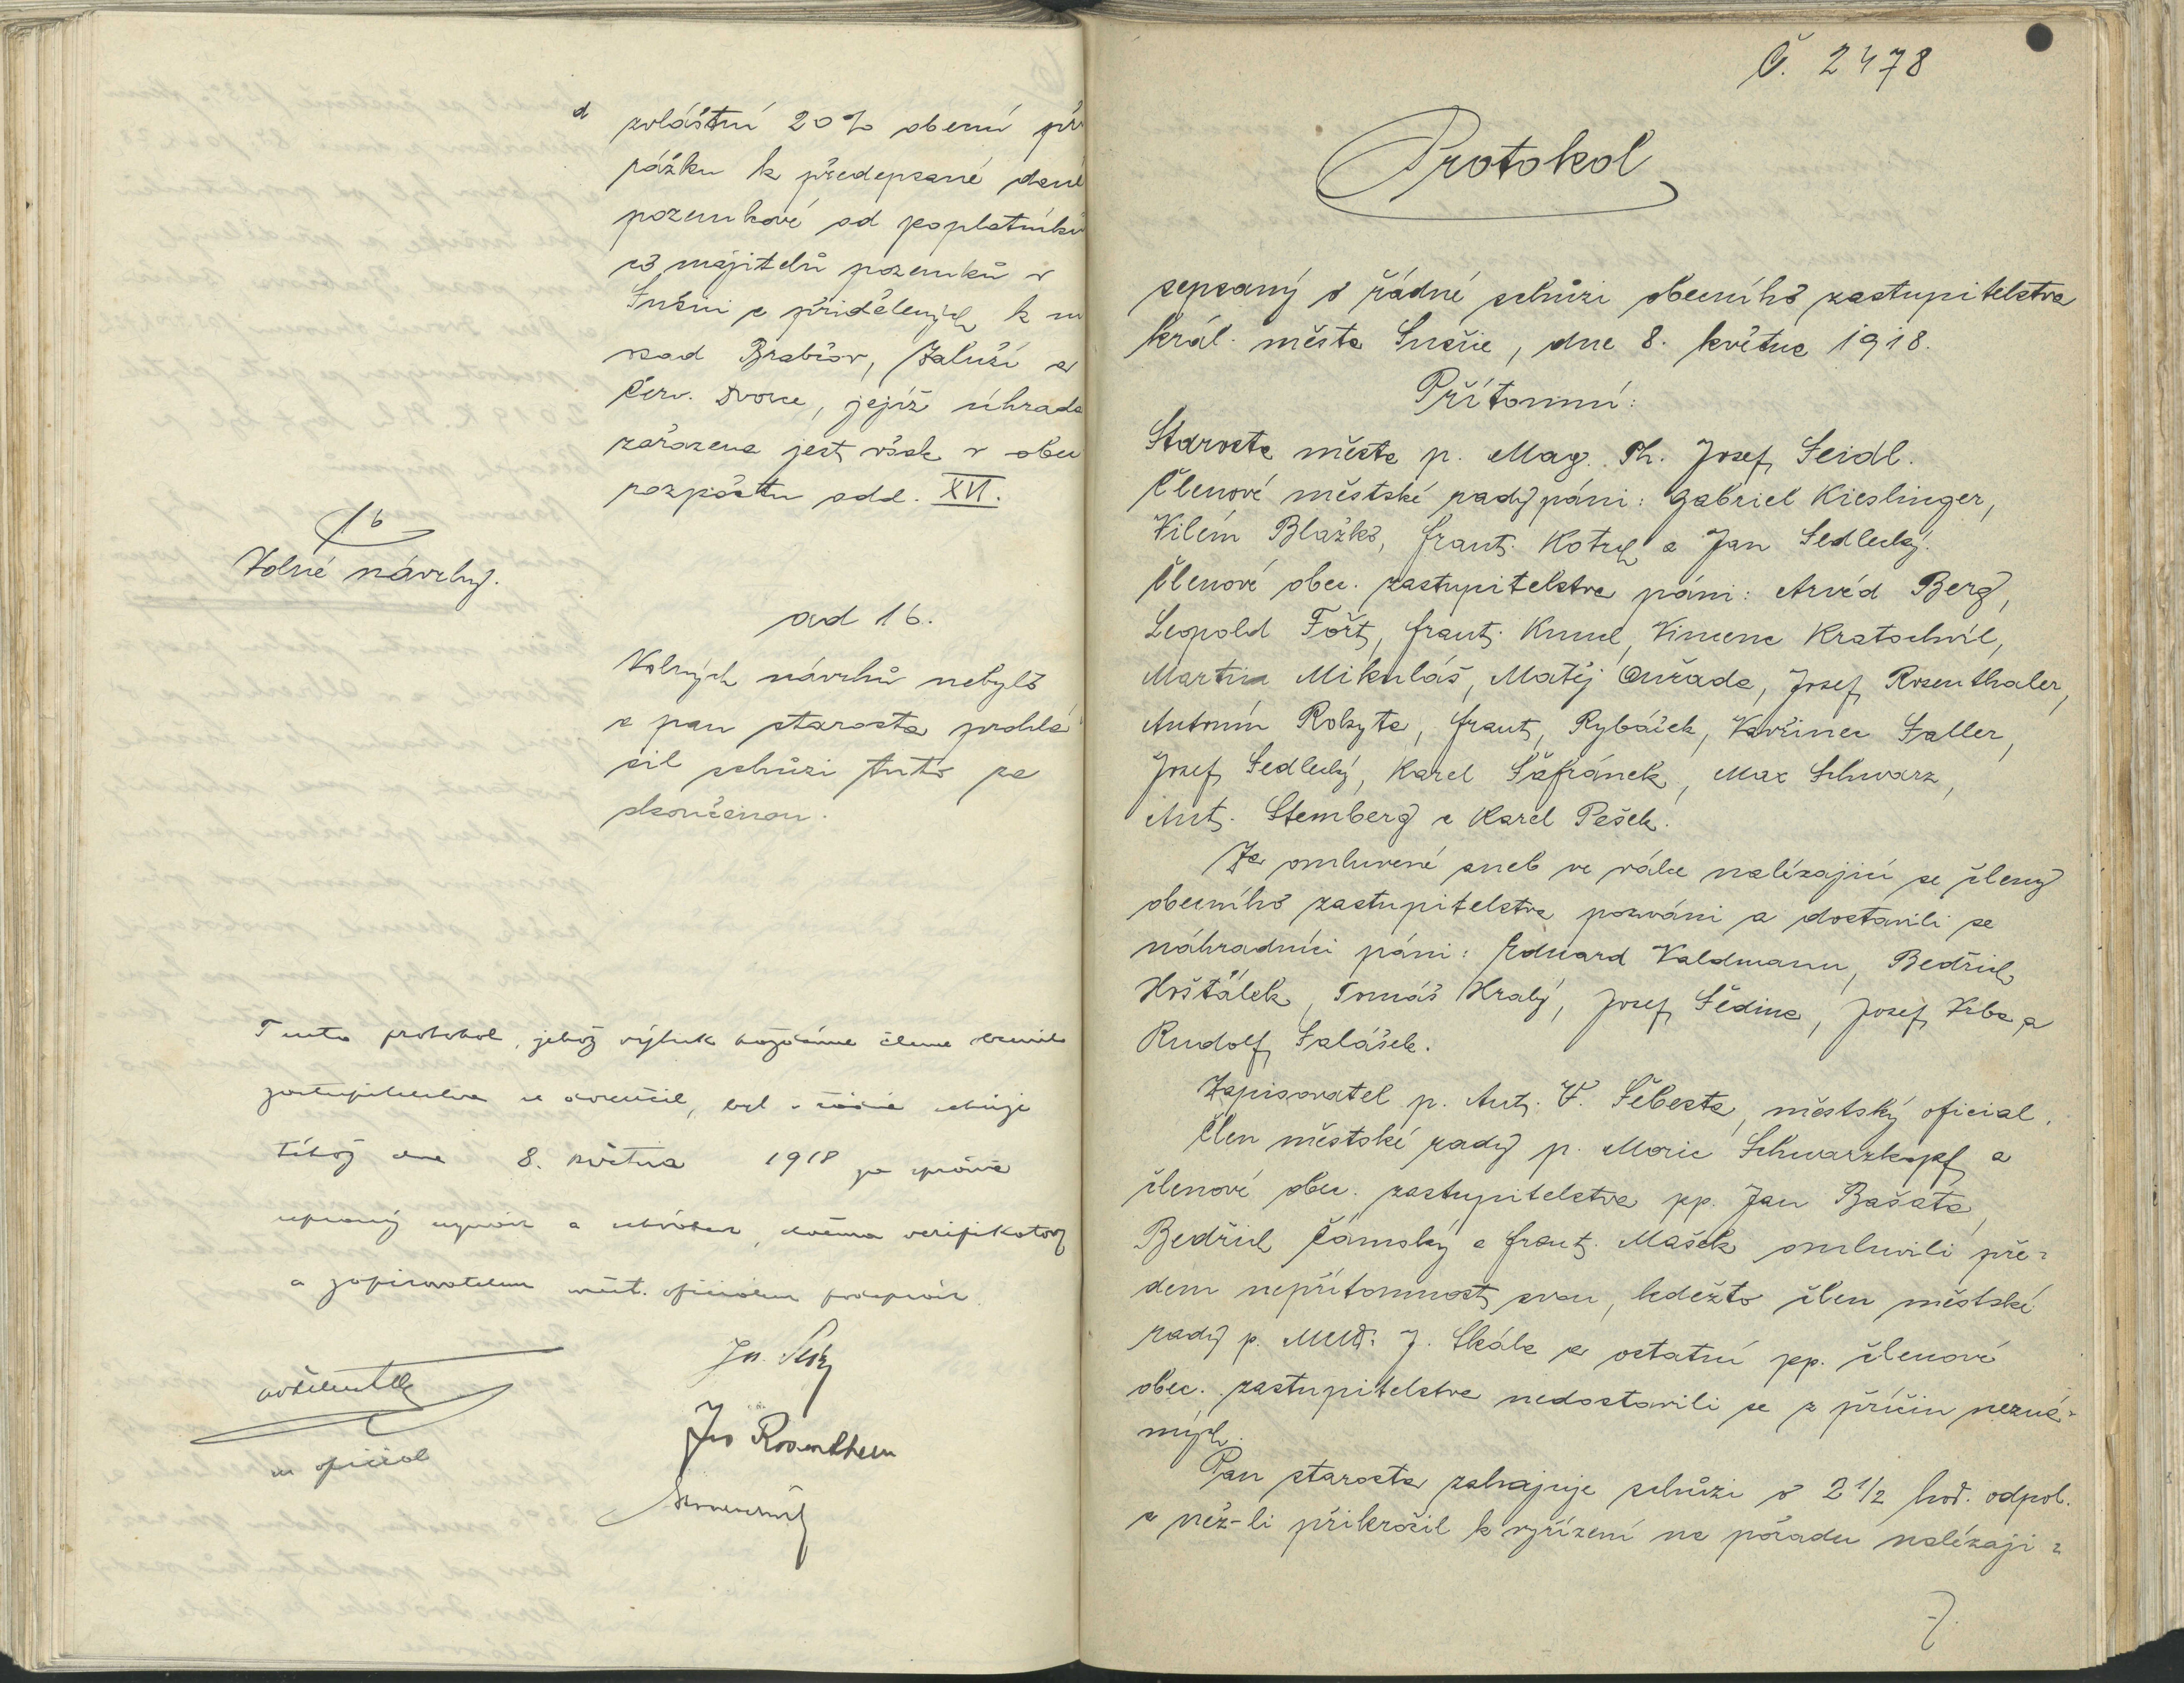 d zvláštní 20% obecní při
rážku k předepsané dani
pozemkové od poplatníků
co majitelů pozemků v
Sušici a přidělených k ní
osad Brabčov, Záluží a
Červ. Dvorce, jejíž úhrada
zařazena jest však v obec
rozpočtu odd. XVI.
16
Volné návrhy.
ad 16.
Volných návrhů nebylo
a pan starosta prohlá
sil schůzi tuto za
skončenou.
Tento protokol, jehož výtisk každému členu obecního
zastupitelstva se doručil, byl v řádné schůzi
téhož dne 8. května 1918 po správě
sepsaný uznán a schválen, dvěma verifikatory
a zapisovatelem měst. oficiálem podepsán.
Jos. Seidl
Jos Rosenthaler
m. oficiál
Č. 2478
Protokol
sepsaný o řádné schůzi obecního zastupitelstva
král. města Sušice, dne 8. května 1918.
Přítomni:
Starosta města p. Mag. Ph. Josef Seidl.
Členové městské rady páni: Gabriel Kieslinger,
Vilém Blažko, Frant. Kotrch a Jan Sedlecký.
Členové obec. zastupitelstva páni: Arvéd Berg,
Leopold Fořt, Frant. Kunc, Vincenc Kratochvíl,
Martin Mikuláš, Matěj Ouřada, Josef Rosenthaler,
Antonín Rokyta, Frant. Rybáček, Vavřinec Saller,
Josef Sedlecký, Karel Šafránek, Max Schwarz,
Ant. Stemberg a Karel Pešek.
Za omluvené aneb ve válce nalézající se členy
obecního zastupitelstva pozváni a dostavili se
náhradníci páni: Eduard Valdmann, Bedřich
Hošťálek, Tomáš Hralý, Josef Šedina, Josef Vrba a
Rudolf Salášek.
Zapisovatel p. Ant. V. Šebesta, městský oficial.
Člen městské rady p. Moric Schwarzkopf a
členové obec. zastupitelstva pp. Jan Bašata,
Bedřich Čámský a Frant. Mašek omluvili pře-
dem nepřítomnost svou, kdežto člen městské
rady p. MUDr. J. Skála a ostatní pp. členové
obec. zastupitelstva nedostavili se z příčin nezná-
mých.
Pan starosta zahajuje schůzi o 2 1/2 hod. odpol.
a než-li přikročil k vyřízení na pořadu nalézají-